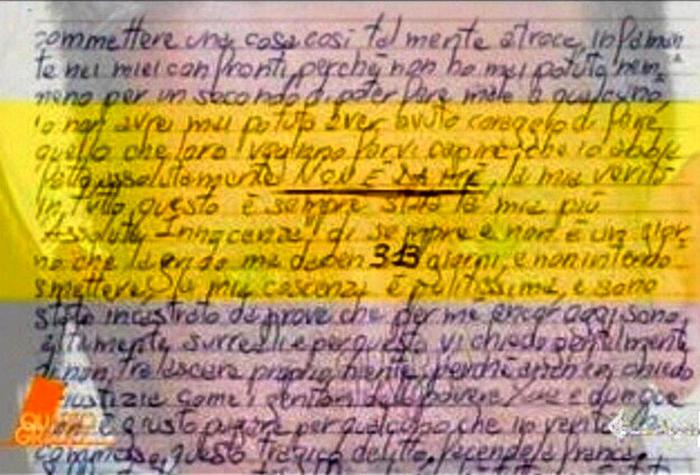 commettere una cosa così tal mente atroce, infaman
te nei miei confronti, perchè non ho mai potuto nem
meno per un secondo di poter fare male a qualcuno,
io non avrei mai potuto aver avuto coraggio di fare
quello che loro vogliono farvi capire, che io abbia
fatto, assolutamente NON È DA ME, la mia verità
in tutto questo è sempre stata la mia più
Assoluta Innocenza di sempre e non è un gior
no che la grido ma daben 313 giorni, e non intendo
smettere, la mia coscenza è pulitissima, e sono
stato incastrato da prove che per me ancor oggi sono
altamente surreali e per questo vi chiedo gentilmente
di non tralasciare proprio niente, perchè anch'io chiedo
giustizia come i genitori della povera e dunque
non è giusto pagare per qualcuno che in verità ha
commesso questo tragico delitto,
QUARTO
GRADO